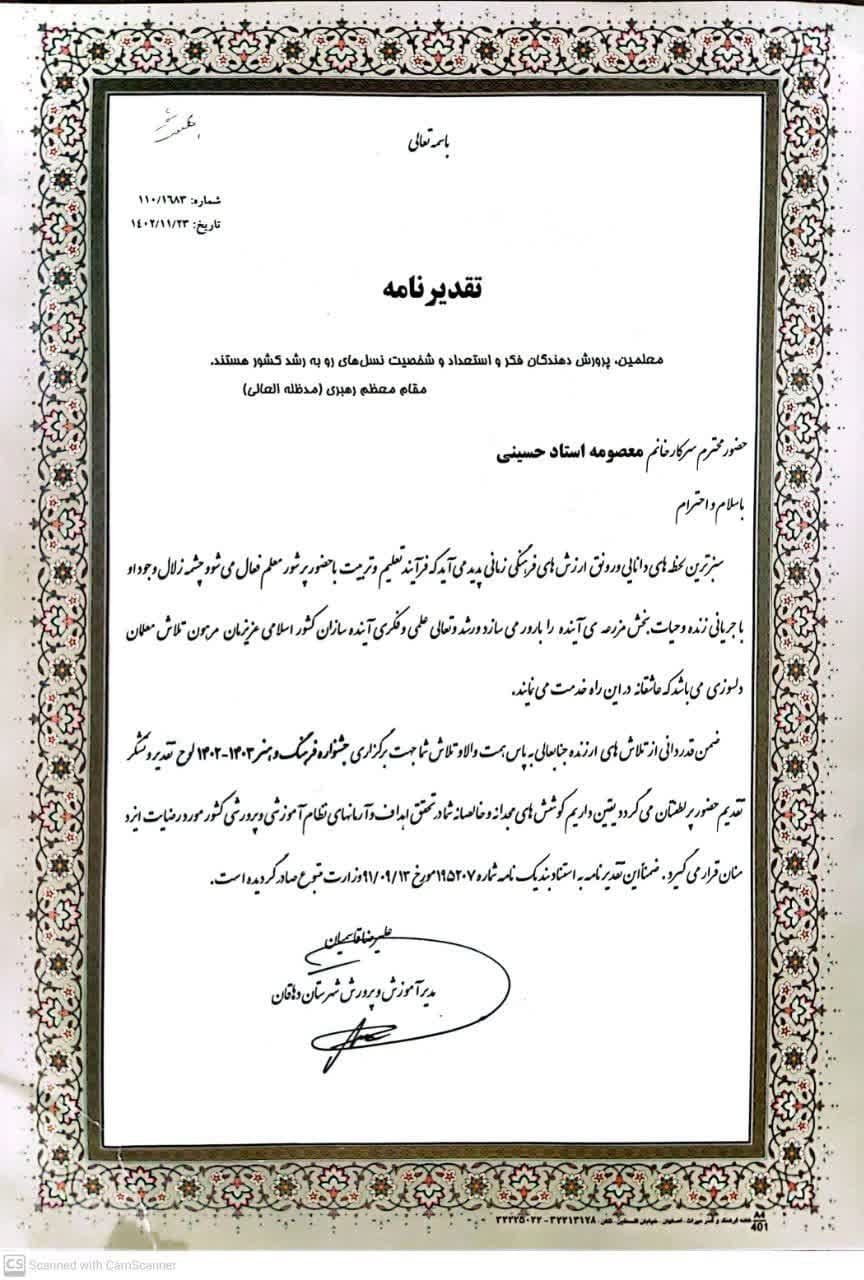 باسمه تعالی
شماره: ۱۱۰/۱۶۸۳
تاریخ: ۱۴۰۲/۱۱/۲۳
تقدیرنامه
معلمین، پرورش دهندگان فکر و استعداد و شخصیت نسل‌های رو به رشد کشور هستند.
مقام معظم رهبری (مدظله العالی)
حضور محترم سرکار خانم معصومه استاد حسینی
باسلام و احترام
سبزترین لحظه های دانایی و رونق ارزش های فرهنگی زمانی پدید می آید که فرآیند تعلیم و تربیت با حضور پرشور معلم فعال می شود و چشمه زلال وجود او
با جریانی زنده و حیات بخش مزرعه ی آینده را بارور می سازد و رشد و تعالی علمی و فکری آینده سازان کشور اسلامی عزیزمان مرهون تلاش معلمان
دلسوزی می باشد که عاشقانه در این راه خدمت می نمایند.
ضمن قدردانی از تلاش های ارزنده جنابعالی به پاس همت والا و تلاش شما جهت برگزاری جشنواره فرهنگ و هنر ۱۴۰۳-۱۴۰۲ لوح تقدیر و تشکر
تقدیم حضور پر لطفتان می گردد یقین داریم کوشش های مجدانه و خالصانه شما در تحقق اهداف و آرمانهای نظام آموزشی و پرورشی کشور مورد رضایت ایزد
منان قرار می گیرد. ضمناً این تقدیر نامه به استناد بند یک نامه شماره ۱۹۵۲۰۷ مورخ ۹۱/۰۹/۱۳ وزارت متبوع صادر گردیده است.
علیرضا قاسمیان
مدیر آموزش و پرورش شهرستان دهاقان
A4
401
اصفهان، خیابان فلسطین، تلفن: ۳۲۲۱۳۱۷۸ - ۳۲۲۲۵۰۲۲
CS Scanned with CamScanner